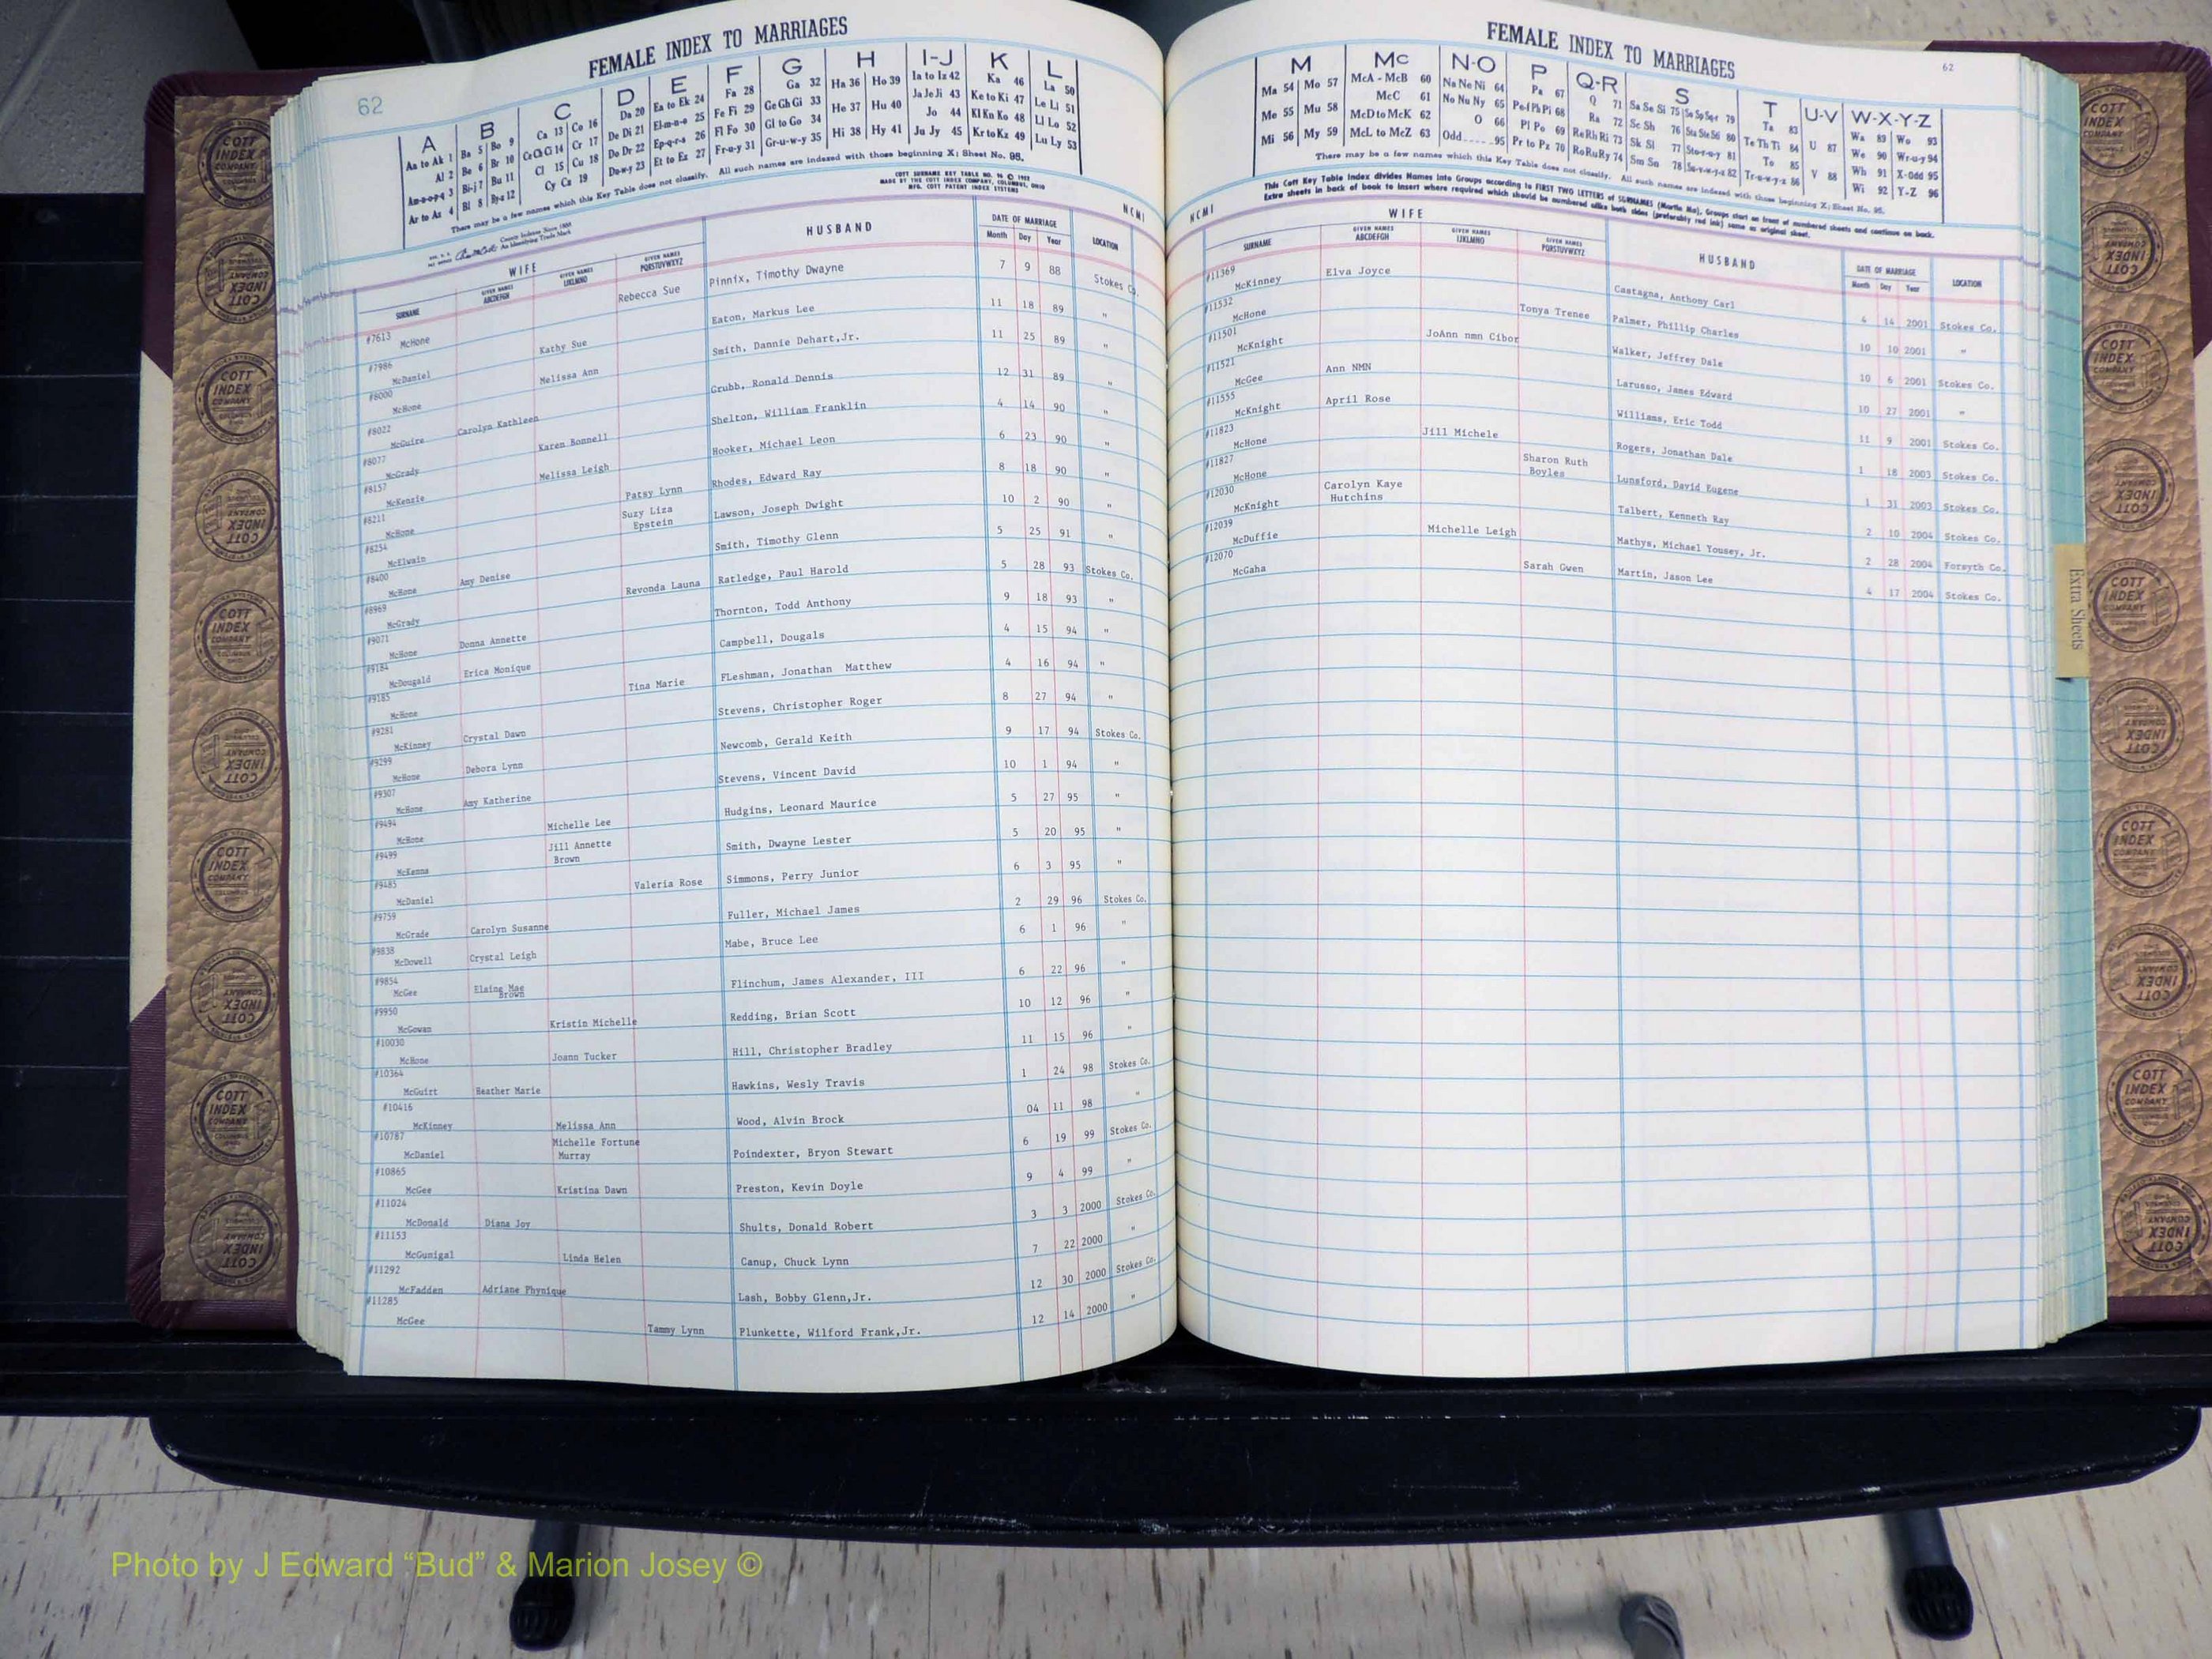 FEMALE INDEX TO MARRIAGES
62
A B C D E F G H I-J K L
Aa to Ak 1 Ba 5 Bo 9 Ca 13 Co 16 Da 20 Ea to Ek 24 Fa 28 Ga 32 Ha 36 Ho 39 Ia to Iz 42 Ka 46 La 50
Al 2 Be 6 Br 10 Ce Ch Ci 14 Cr 17 De Di 21 El-m-n-o 25 Fe Fi 29 Ge Gh Gi 33 He 37 Hu 40 Ja Je Ji 43 Ke to Ki 47 Le Li 51
Am-n-o-p-q 3 Bi-j 7 Bu 11 Cl 15 Cu 18 Do Dr 22 Ep-q-r-s 26 Fl Fo 30 Gl to Go 34 Hi 38 Hy 41 Jo 44 Kl Kn Ko 48 Ll Lo 52
Ar to Az 4 Bl 8 By-z 12 Cy Cz 19 Du-w-y 23 Et to Ez 27 Fr-u-y 31 Gr-u-w-y 35 Ju Jy 45 Kr to Kz 49 Lu Ly 53
There may be a few names which this Key Table does not classify. All such names are indexed with those beginning X; Sheet No. 95.
COTT SURNAME KEY TABLE NO. 96 © 1952
MADE BY THE COTT INDEX COMPANY, COLUMBUS, OHIO
MFG. COTT PATENT INDEX SYSTEMS
County Indexes Since 1888
An Identifying Trade Mark
NCMI
WIFE HUSBAND DATE OF MARRIAGE LOCATION
SURNAME GIVEN NAMES ABCDEFGH GIVEN NAMES IJKLMNO GIVEN NAMES PQRSTUVWXYZ Month Day Year
#7613 McHone Rebecca Sue Pinnix, Timothy Dwayne 7 9 88 Stokes Co.
#7986 McDaniel Kathy Sue Eaton, Markus Lee 11 18 89 "
#8000 McHone Melissa Ann Smith, Dannie Dehart,Jr. 11 25 89 "
#8022 McGuire Carolyn Kathleen Grubb, Ronald Dennis 12 31 89 "
#8077 McGrady Karen Bonnell Shelton, William Franklin 4 14 90 "
#8157 McKenzie Melissa Leigh Hooker, Michael Leon 6 23 90 "
#8211 McHone Patsy Lynn Rhodes, Edward Ray 8 18 90 "
#8254 McElwain Suzy Liza Epstein Lawson, Joseph Dwight 10 2 90 "
#8400 McHone Amy Denise Smith, Timothy Glenn 5 25 91 "
#8969 McGrady Revonda Launa Ratledge, Paul Harold 5 28 93 Stokes Co.
#9071 McHone Donna Annette Thornton, Todd Anthony 9 18 93 "
#9184 McDougald Erica Monique Campbell, Dougals 4 15 94 "
#9185 McHone Tina Marie FLeshman, Jonathan Matthew 4 16 94 "
#9281 McKinney Crystal Dawn Stevens, Christopher Roger 8 27 94 "
#9299 McHone Debora Lynn Newcomb, Gerald Keith 9 17 94 Stokes Co.
#9307 McHone Amy Katherine Stevens, Vincent David 10 1 94 "
#9494 McHone Michelle Lee Hudgins, Leonard Maurice 5 27 95 "
#9499 McKenna Jill Annette Brown Smith, Dwayne Lester 5 20 95 "
#9485 McDaniel Valeria Rose Simmons, Perry Junior 6 3 95 "
#9759 McGrade Carolyn Susanne Fuller, Michael James 2 29 96 Stokes Co.
#9838 McDowell Crystal Leigh Mabe, Bruce Lee 6 1 96 "
#9854 McGee Elaine Mae Brown Flinchum, James Alexander, III 6 22 96 "
#9950 McGowan Kristin Michelle Redding, Brian Scott 10 12 96 "
#10030 McHone Joann Tucker Hill, Christopher Bradley 11 15 96 "
#10364 McGuirt Heather Marie Hawkins, Wesly Travis 1 24 98 Stokes Co.
#10416 McKinney Melissa Ann Wood, Alvin Brock 04 11 98 "
#10787 McDaniel Michelle Fortune Murray Poindexter, Bryon Stewart 6 19 99 Stokes Co.
#10865 McGee Kristina Dawn Preston, Kevin Doyle 9 4 99 "
#11024 McDonald Diana Joy Shults, Donald Robert 3 3 2000 Stokes Co.
#11153 McGunigal Linda Helen Canup, Chuck Lynn 7 22 2000 "
#11292 McFadden Adriane Phynique Lash, Bobby Glenn,Jr. 12 30 2000 Stokes Co.
#11285 McGee Tammy Lynn Plunkette, Wilford Frank,Jr. 12 14 2000 "
FEMALE INDEX TO MARRIAGES
62
M Mc N-O P Q-R S T U-V W-X-Y-Z
Ma 54 Mo 57 McA - McB 60 Na Ne Ni 64 Pa 67 Q 71 Sa Se Si 75 So Sp Sq-r 79 Ta 83 U 87 Wa 89 Wo 93
Me 55 Mu 58 McC 61 No Nu Ny 65 Pe-f Ph Pi 68 Ra 72 Sc Sh 76 Sta Ste Sti 80 Te Th Ti 84 V 88 We 90 Wr-u-y 94
Mi 56 My 59 McD to McK 62 O 66 Pl Po 69 Re Rh Ri 73 Sk Sl 77 Sto-r-u-y 81 To 85 Wh 91 X-Odd 95
McL to McZ 63 Odd.....95 Pr to Pz 70 Ro Ru Ry 74 Sm Sn 78 Su-v-w-y-z 82 Tr-u-w-y-z 86 Wi 92 Y-Z 96
There may be a few names which this Key Table does not classify. All such names are indexed with those beginning X; Sheet No. 95.
This Cott Key Table Index divides Names into Groups according to FIRST TWO LETTERS of SURNAMES (Martin Ma), Groups start on front of numbered sheets and continue on back.
Extra sheets in back of book to insert where required which should be numbered alike both sides (preferably red ink) same as original sheet.
NCMI
WIFE HUSBAND DATE OF MARRIAGE LOCATION
SURNAME GIVEN NAMES ABCDEFGH GIVEN NAMES IJKLMNO GIVEN NAMES PQRSTUVWXYZ Month Day Year
#11369 McKinney Elva Joyce Castagna, Anthony Carl 4 14 2001 Stokes Co.
#11532 McHone Tonya Trenee Palmer, Phillip Charles 10 10 2001 "
#11501 McKnight JoAnn nmn Cibor Walker, Jeffrey Dale 10 6 2001 Stokes Co.
#11521 McGee Ann NMN Larusso, James Edward 10 27 2001 "
#11555 McKnight April Rose Williams, Eric Todd 11 9 2001 Stokes Co.
#11823 McHone Jill Michele Rogers, Jonathan Dale 1 18 2003 Stokes Co.
#11827 McHone Sharon Ruth Boyles Lunsford, David Eugene 1 31 2003 Stokes Co.
#12030 McKnight Carolyn Kaye Hutchins Talbert, Kenneth Ray 2 10 2004 Stokes Co.
#12039 McDuffie Michelle Leigh Mathys, Michael Yousey, Jr. 2 28 2004 Forsyth Co.
#12070 McGaha Sarah Gwen Martin, Jason Lee 4 17 2004 Stokes Co.
Extra Sheets
COTT INDEX COMPANY
Photo by J Edward “Bud” & Marion Josey ©